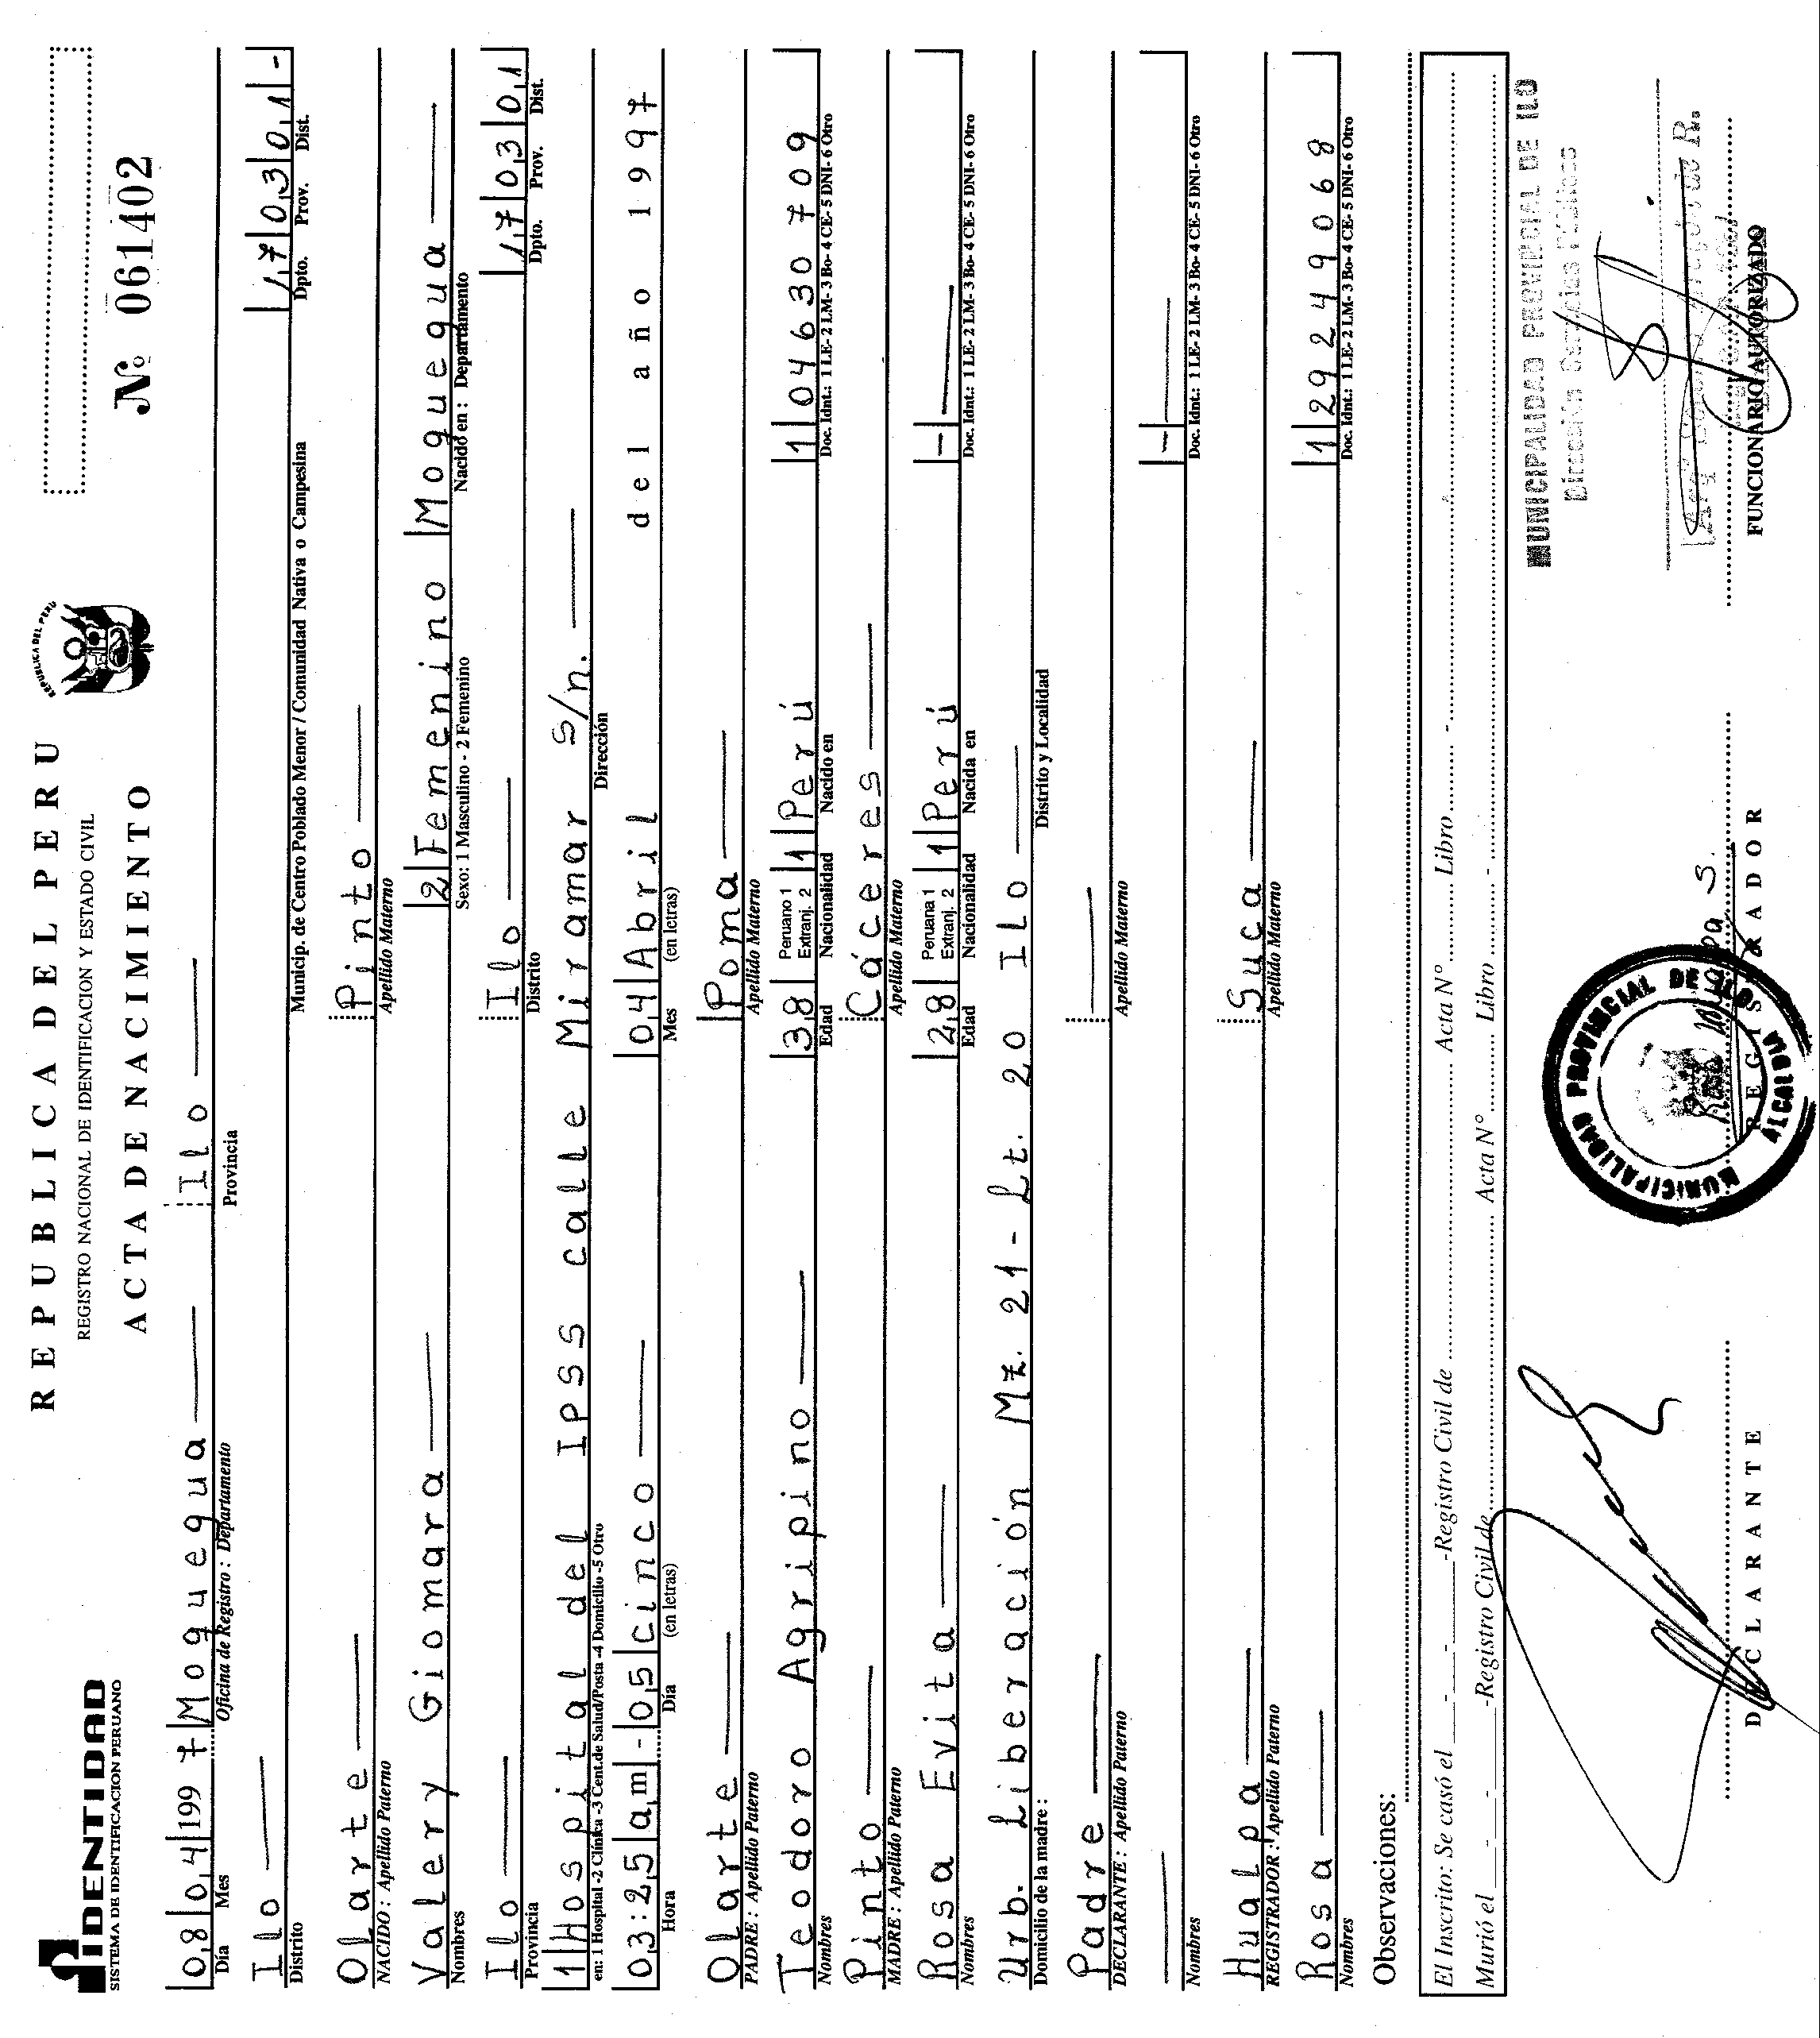 IDENTIDAD
SISTEMA DE IDENTIFICACION PERUANO
REPUBLICA DEL PERU
REGISTRO NACIONAL DE IDENTIFICACION Y ESTADO CIVIL
ACTA DE NACIMIENTO
REPUBLICA DEL PERU
Nº 061402
08 04 1997 Moquegua Ilo
Día Mes Oficina de Registro : Departamento Provincia
Ilo 17 03 01 -
Distrito Municip. de Centro Poblado Menor / Comunidad Nativa o Campesina Dpto. Prov. Dist.
Olarte Pinto
NACIDO : Apellido Paterno Apellido Materno
Valery Giomara 2 Femenino Moquegua
Nombres Sexo: 1 Masculino - 2 Femenino Nacido en : Departamento
Ilo Ilo 17 03 01
Provincia Distrito Dpto. Prov. Dist.
1 Hospital del IPSS calle Miramar s/n.
en: 1 Hospital -2 Clínica -3 Cent.de Salud/Posta -4 Domicilio -5 Otro Dirección
03:25 a,m - 05 cinco 04 Abril del año 1997
Hora Día (en letras) Mes (en letras)
Olarte Poma
PADRE : Apellido Paterno Apellido Materno
Teodoro Agripino 38 Peruano 1 Extranj. 2 1 Perú 1 04630709
Nombres Edad Nacionalidad Nacido en Doc. Idnt.: 1 LE- 2 LM- 3 Bo- 4 CE- 5 DNI- 6 Otro
Pinto Cáceres
MADRE : Apellido Paterno Apellido Materno
Rosa Evita 28 Peruana 1 Extranj. 2 1 Perú -
Nombres Edad Nacionalidad Nacida en Doc. Idnt.: 1 LE- 2 LM- 3 Bo- 4 CE- 5 DNI- 6 Otro
Urb. Liberación Mz. 21 - Lt. 20 Ilo
Domicilio de la madre : Distrito y Localidad
Padre
DECLARANTE : Apellido Paterno Apellido Materno
-
Nombres Doc. Idnt.: 1 LE- 2 LM- 3 Bo- 4 CE- 5 DNI- 6 Otro
Hualpa Suca
REGISTRADOR : Apellido Paterno Apellido Materno
Rosa 1 29249068
Nombres Doc. Idnt.: 1 LE- 2 LM- 3 Bo- 4 CE- 5 DNI- 6 Otro
Observaciones:
El Inscrito: Se casó el - - -Registro Civil de Acta Nº Libro -
Murió el - - -Registro Civil de Acta Nº Libro -
MUNICIPALIDAD PROVINCIAL DE ILO
Dirección Servicios Públicos
MUNICIPALIDAD PROVINCIAL DE ILO
ALCALDIA
DECLARANTE REGISTRADOR FUNCIONARIO AUTORIZADO